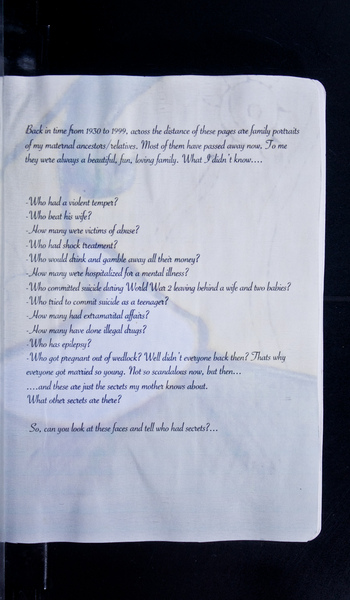 Back in time from 1930 to 1999, across the distance of these pages are family portraits
of my maternal ancestors/relatives. Most of them have passed away now, To me
they were always a beautiful, fun, loving family. What I didn't know....
-Who had a violent temper?
-Who beat his wife?
-How many were victims of abuse?
-Who had shock treatment?
-Who would drink and gamble away all their money?
-How many were hospitalized for a mental illness?
-Who committed suicide during World War 2 leaving behind a wife and two babies?
-Who tried to commit suicide as a teenager?
-How many had extramarital affairs?
-How many have done illegal drugs?
-Who has epilepsy?
-Who got pregnant out of wedlock? Well didn't everyone back then? Thats why
everyone got married so young. Not so scandalous now, but then...
....and these are just the secrets my mother knows about.
What other secrets are there?
So, can you look at these faces and tell who had secrets?...